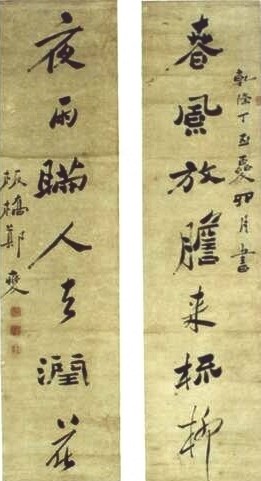 春風放膽来梳柳
乾隆丁丑夏卯月書
夜雨瞞人去潤花
板橋鄭燮